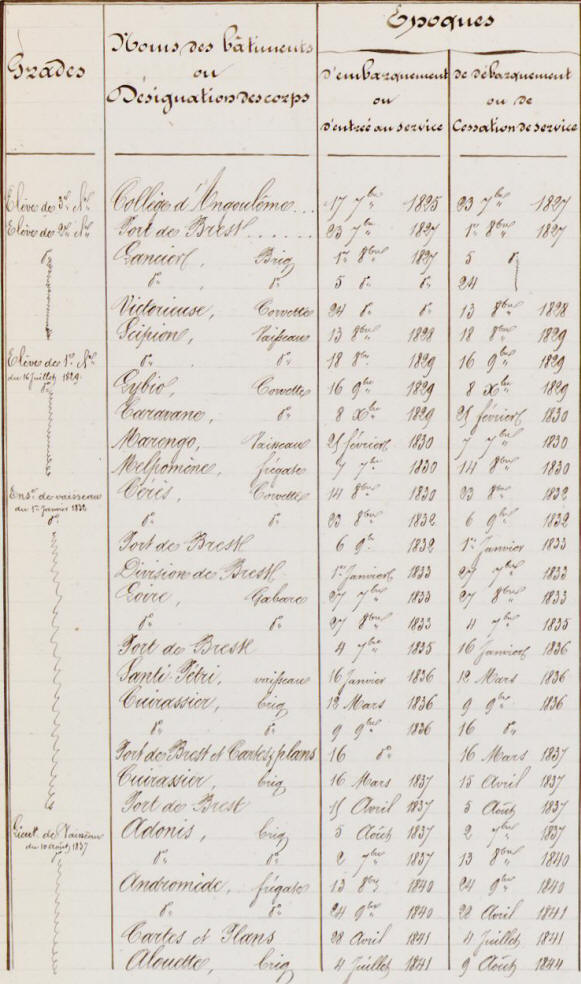 Grades
Noms des bâtiments
ou
Désignation des corps
Epoques
d'embarquement
ou
d'entrée au service
de débarquement
ou de
Cessation de service
Elève de 3e Cl. Collège d'Angoulême... 17 7bre 1825 23 7bre 1827
Elève de 2e Cl. Port de Brest..... 23 7bre 1827 1er 8bre 1827
do Lancier, Brig 1er 8bre 1827 5 do
do do 5 do do 24
Victorieuse, Corvette 24 do do 13 8bre 1828
Scipion, Vaisseau 13 8bre 1828 18 8bre 1829
Elève de 1e Cl. do do 18 8bre 1829 16 9bre 1829
du 16 juillet 1829.
do Bybio, Corvette 16 9bre 1829 8 Xbre 1829
Caravane, do 8 Xbre 1829 25 février 1830
Marengo, Vaisseau 25 février 1830 7 7bre 1830
Melpomène, frégate 7 7bre 1830 14 8bre 1830
Ense de vaisseau Cérès, Corvette 14 8bre 1830 23 8bre 1832
du 1er Janvier 1832
do do do 23 8bre 1832 6 9bre 1832
Port de Brest 6 9bre 1832 1er Janvier 1833
Division de Brest 1er Janvier 1833 27 7bre 1833
Loire, Gabare 27 7bre 1833 27 8bre 1833
do do 27 8bre 1833 4 7bre 1835
Port de Brest 4 7bre 1835 16 Janvier 1836
Santi-Pétri, vaisseau 16 Janvier 1836 12 Mars 1836
Cuirassier, brig 12 Mars 1836 9 9bre 1836
do do 9 9bre 1836 16 do
Port de Brest et Cartes, plans 16 do 16 Mars 1837
Cuirassier, brig 16 Mars 1837 15 Avril 1837
Port de Brest 15 Avril 1837 5 Août 1837
Lieut. de Vaisseau Adonis, brig 5 Août 1837 2 7bre 1837
du 10 août 1837
do do do 2 7bre 1837 13 8bre 1840
Andromède, frégate 13 8bre 1840 24 9bre 1840
do do 24 9bre 1840 28 Avril 1841
Cartes et Plans 28 Avril 1841 4 Juillet 1841
Alouette, brig 4 Juillet 1841 9 Août 1844